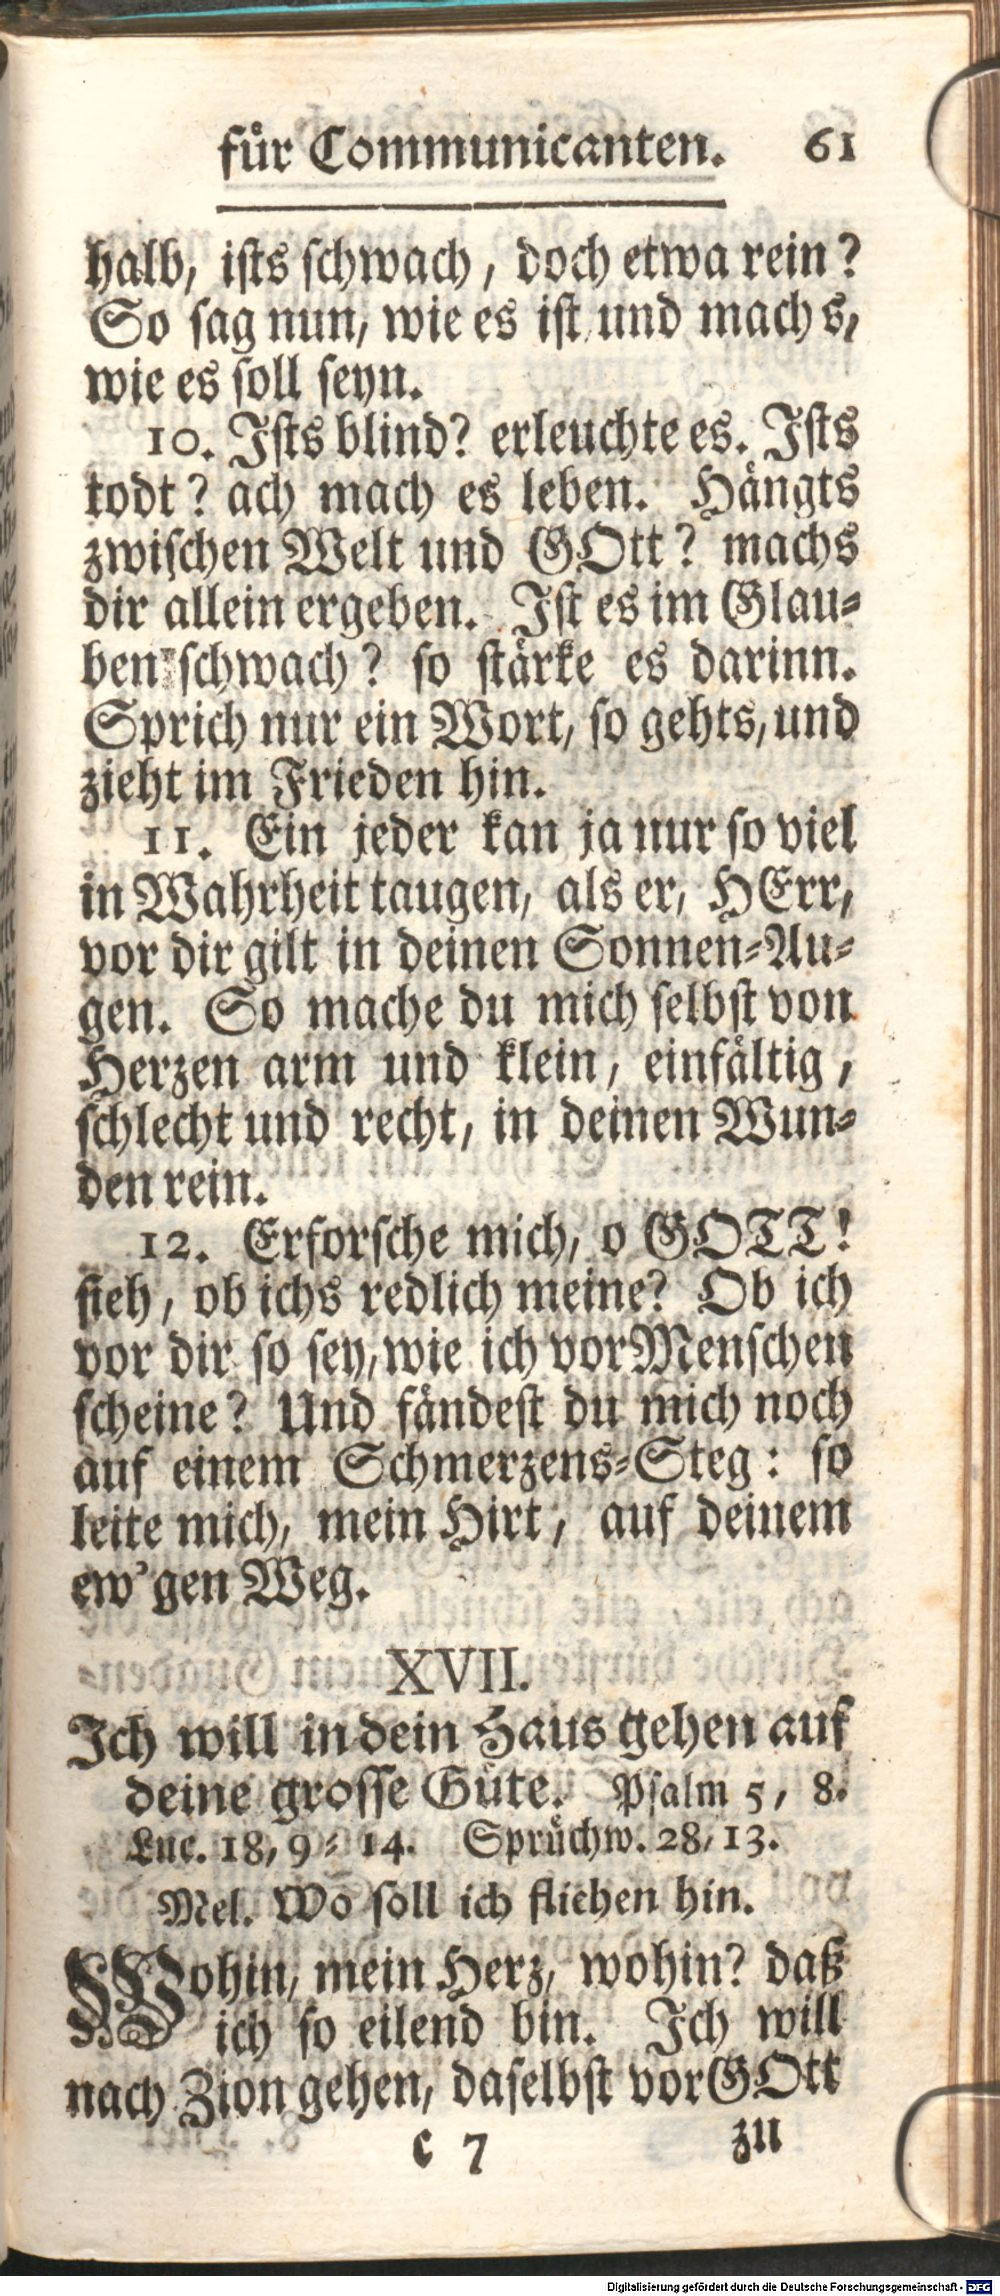 für Communicanten. 61
halb, ists schwach, doch etwa rein?
So sag nun, wie es ist und mach s,
wie es soll seyn.
10. Ists blind? erleuchte es. Ists
todt? ach mach es leben. Hängts
zwischen Welt und GOtt? machs
dir allein ergeben. Ist es im Glau-
ben schwach? so stärke es darinn.
Sprich nur ein Wort, so gehts, und
zieht im Frieden hin.
11. Ein jeder kan ja nur so viel
in Wahrheit taugen, als er, HErr,
vor dir gilt in deinen Sonnen-Au-
gen. So mache du mich selbst von
Herzen arm und klein, einfältig,
schlecht und recht, in deinen Wun-
den rein.
12. Erforsche mich, o GOTT!
sieh, ob ichs redlich meine? Ob ich
vor dir so sey, wie ich vor Menschen
scheine? Und fändest du mich noch
auf einem Schmerzens-Steg: so
leite mich, mein Hirt, auf deinem
ew'gen Weg.
XVII.
Ich will in dein Haus gehen auf
deine grosse Güte. Psalm 5, 8.
Luc. 18, 9-14. Sprüchw. 28, 13.
Mel. Wo soll ich fliehen hin.
Wohin, mein Herz, wohin? daß
ich so eilend bin. Ich will
nach Zion gehen, daselbst vor GOtt
c 7 zu
Digitalisierung gefördert durch die Deutsche Forschungsgemeinschaft - DFG